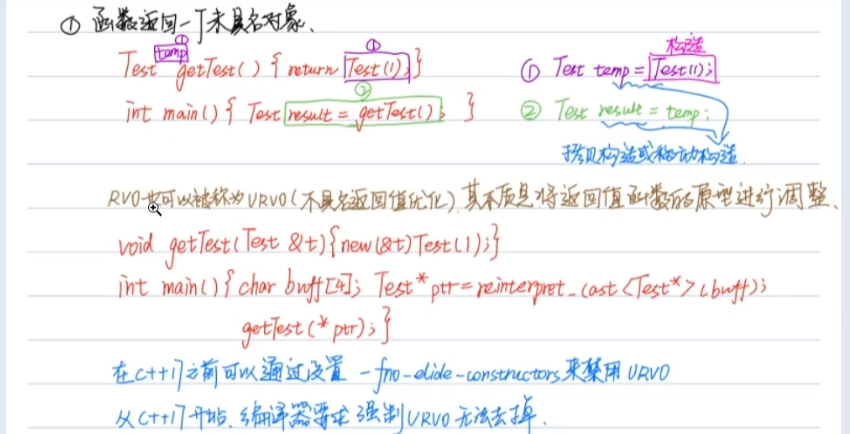 ① 函数返回一个未具名对象、
Test temp① getTest() { return Test(1); ① }
构造
① Test temp = Test(1);
int main() { Test result = getTest(); ② }
② Test result = temp;
拷贝构造或移动构造.
RVO也可以被称为URVO(不具名返回值优化).其本质是将返回值函数的原型进行调整、
void getTest(Test &t){new(&t)Test(1);}
int main(){char buff[4]; Test* ptr=reinterpret_cast<Test*>(buff);
getTest(*ptr);}
在C++17之前可以通过设置 -fno-elide-constructors来禁用URVO
从C++17开始.编译器要求强制URVO无法去掉.